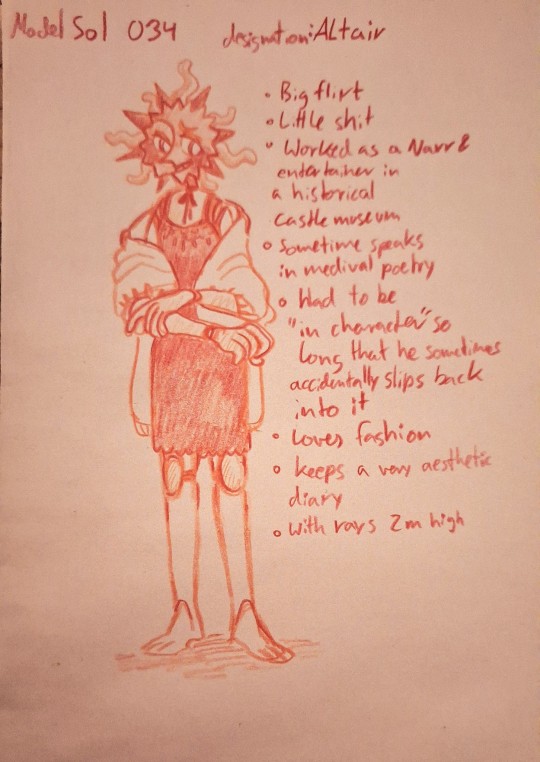 Model Sol 034 designation: Altair
• Big flirt
• Little shit
• Worked as a Narr &
entertainer in
a historical
castle museum
• Sometime speaks
in medival poetry
• Had to be
"in character" so
long that he sometimes
accidentally slips back
into it
• Loves fashion
• keeps a very aesthetic
diary
• with rays 2m high